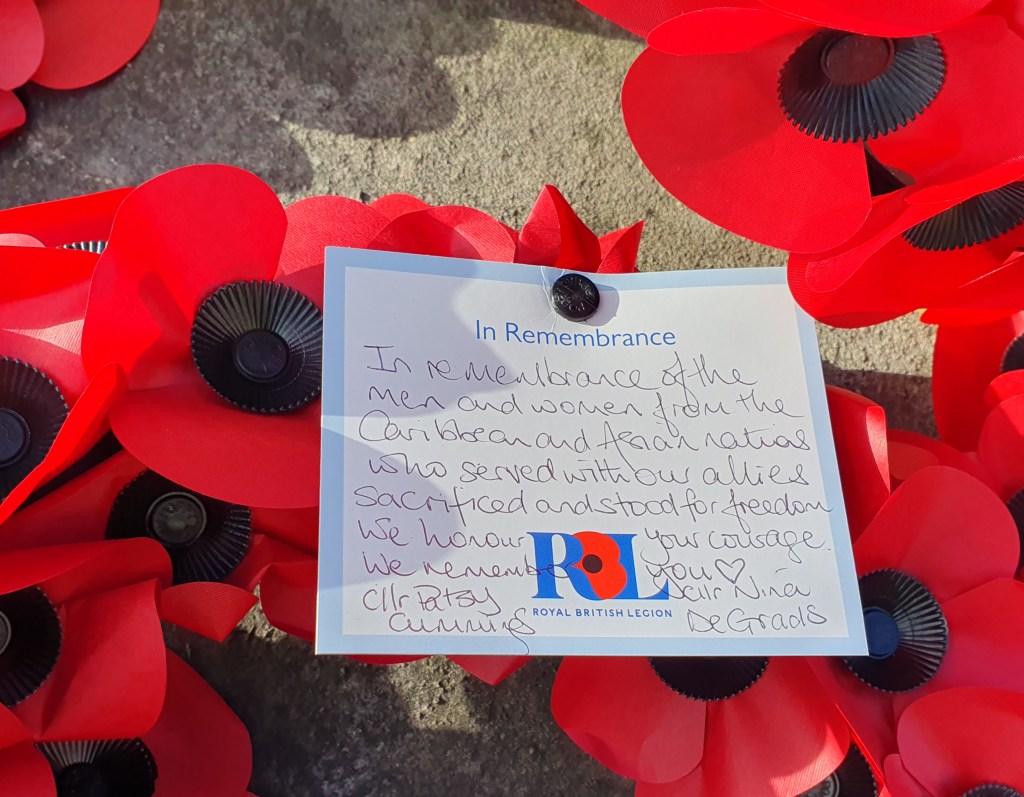 In Remembrance
In remembrance of the
men and women from the
Caribbean and Asian nations
who served with our allies
sacrificed and stood for freedom
We honour your courage.
We remember you ♡
RBL
ROYAL BRITISH LEGION
Cllr Patsy Cummings
Cllr Nina DeGrads